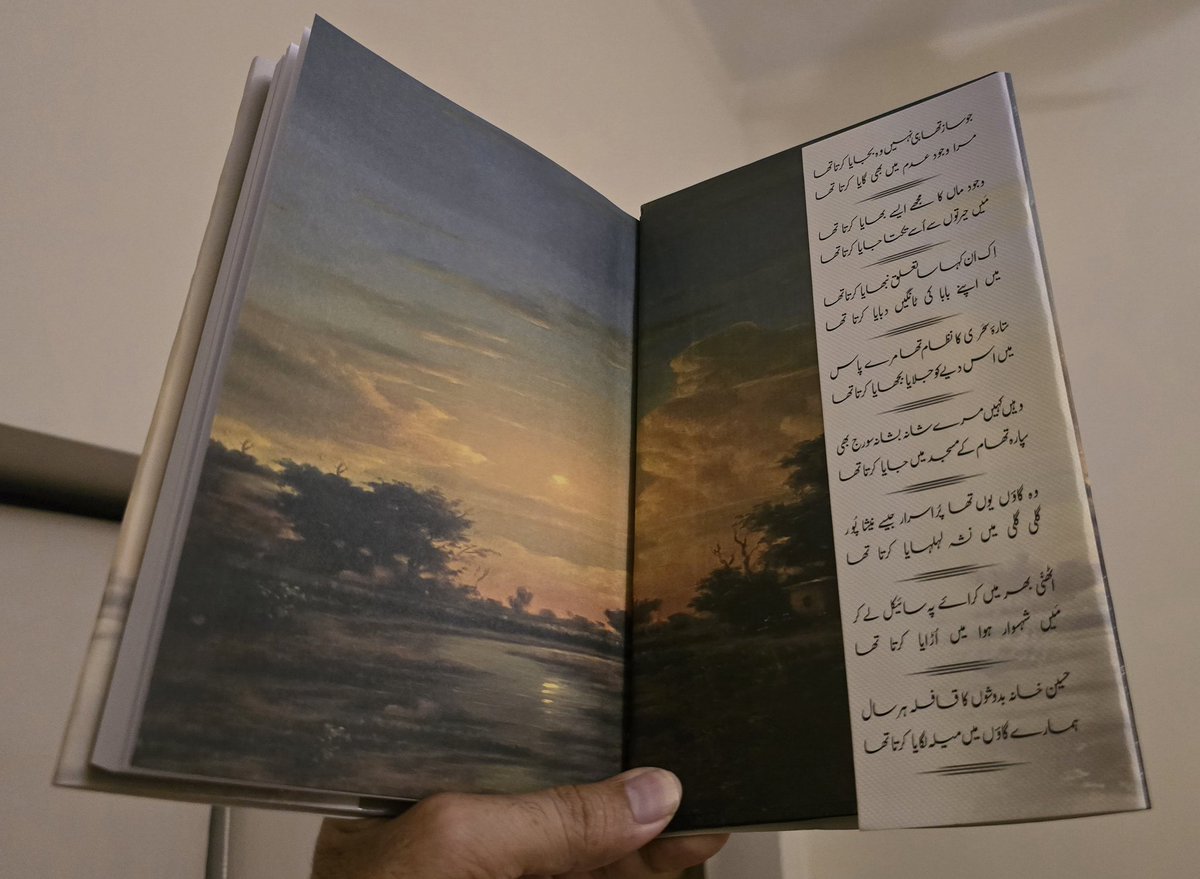 جو ساز تھا ہی نہیں وہ بجایا کرتا تھا
مرا وجود عدم میں بھی گایا کرتا تھا
وجود ماں کا مجھے ایسے بھایا کرتا تھا
میں حیرتوں سے اُسے تکتا جایا کرتا تھا
اک اَن کہا سا تعلق نبھایا کرتا تھا
میں اپنے بابا کی ٹانگیں دبایا کرتا تھا
ستارۂ سحری کا نظام تھا مرے پاس
میں اس دیے کو جلایا بجھایا کرتا تھا
وہیں کہیں مرے شانہ بشانہ سورج بھی
سپارہ تھام کے مسجد میں جایا کرتا تھا
وہ گاؤں یوں تھا پُراسرار جیسے نیشا پُور
گلی گلی میں نشہ لہلہایا کرتا تھا
اٹھنی بھر میں کرائے پہ سائیکل لے کر
میں شہسوار ہوا میں اُڑایا کرتا تھا
حسین خانہ بدوشوں کا قافلہ ہر سال
ہمارے گاؤں میں میلہ لگایا کرتا تھا